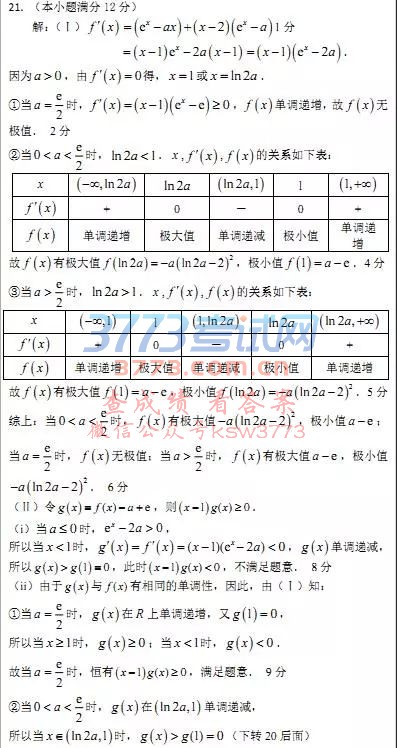 21. (本小题满分12分)
解:(Ⅰ) f′(x)=(eˣ-ax)+(x-2)(eˣ-a) 1分
=(x-1)eˣ-2a(x-1)=(x-1)(eˣ-2a).
因为a>0,由f′(x)=0得,x=1或x=ln2a.
①当a=e/2时,f′(x)=(x-1)(eˣ-e)≥0,f(x)单调递增,故f(x)无
极值. 2分
②当0<a<e/2时,ln2a<1.x,f′(x),f(x)的关系如下表:
x (-∞,ln2a) ln2a (ln2a,1) 1 (1,+∞)
f′(x) + 0 - 0 +
f(x) 单调递增 极大值 单调递减 极小值 单调递增
故f(x)有极大值f(ln2a)=-a(ln2a-2)²,极小值f(1)=a-e.4分
③当a>e/2时,ln2a>1.x,f′(x),f(x)的关系如下表:
x (-∞,1) 1 (1,ln2a) ln2a (ln2a,+∞)
f′(x) + 0 - 0 +
f(x) 单调递增 极大值 单调递减 极小值 单调递增
故f(x)有极大值f(1)=a-e,极小值f(ln2a)=-a(ln2a-2)².5分
综上:当0<a<e/2时,f(x)有极大值-a(ln2a-2)²,极小值a-e;
当a=e/2时,f(x)无极值;当a>e/2时,f(x)有极大值a-e,极小值
-a(ln2a-2)². 6分
(Ⅱ)令g(x)=f(x)-a+e,则(x-1)g(x)≥0.
(i)当a≤0时,eˣ-2a>0,
所以当x<1时,g′(x)=f′(x)=(x-1)(eˣ-2a)<0,g(x)单调递减,
所以g(x)>g(1)=0,此时(x-1)g(x)<0,不满足题意. 8分
(ii)由于g(x)与f(x)有相同的单调性,因此,由(Ⅰ)知:
①当a=e/2时,g(x)在R上单调递增,又g(1)=0,
所以当x≥1时,g(x)≥0;当x<1时,g(x)<0.
故当a=e/2时,恒有(x-1)g(x)≥0,满足题意. 9分
②当0<a<e/2时,g(x)在(ln2a,1)单调递减,
所以当x∈(ln2a,1)时,g(x)>g(1)=0(下转20后面)
3773考试网
3773.com
查成绩 看答案
微信公众号ksw3773